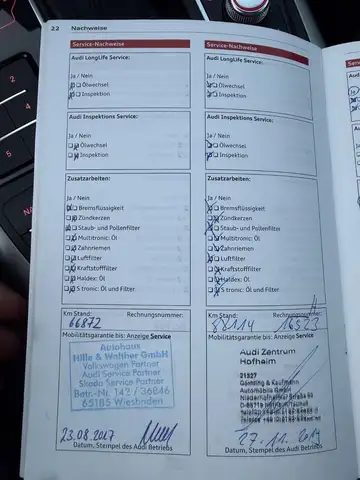 22 Nachweise
Service-Nachweise
Audi LongLife Service:
Ja / Nein
Ölwechsel
Inspektion
Audi Inspektions Service:
Ja / Nein
Ölwechsel
Inspektion
Zusatzarbeiten:
Ja / Nein
Bremsflüssigkeit
Zündkerzen
Staub- und Pollenfilter
Multitronic: Öl
Zahnriemen
Luftfilter
Kraftstofffilter
Haldex: Öl
S tronic: Öl und Filter
Km Stand: Rechnungsnummer:
66872
Mobilitätsgarantie bis: Anzeige Service
Autohaus
Hille & Walther GmbH
Volkswagen Partner
Audi Service Partner
Skoda Service Partner
Betr.-Nr. 142 / 36846
65185 Wiesbaden
23.08.2017
Datum, Stempel des Audi Betriebs
Service-Nachweise
Audi LongLife Service:
Ja / Nein
Ölwechsel
Inspektion
Audi Inspektions Service:
Ja / Nein
Ölwechsel
Inspektion
Zusatzarbeiten:
Ja / Nein
Bremsflüssigkeit
Zündkerzen
Staub- und Pollenfilter
Multitronic: Öl
Zahnriemen
Luftfilter
Kraftstofffilter
Haldex: Öl
S tronic: Öl und Filter
Km Stand: Rechnungsnummer:
Mobilitätsgarantie bis: Anzeige Service
Audi Zentrum
Hofheim
21327
Automobile GmbH
27.11.
Datum, Stempel des Audi Betriebs